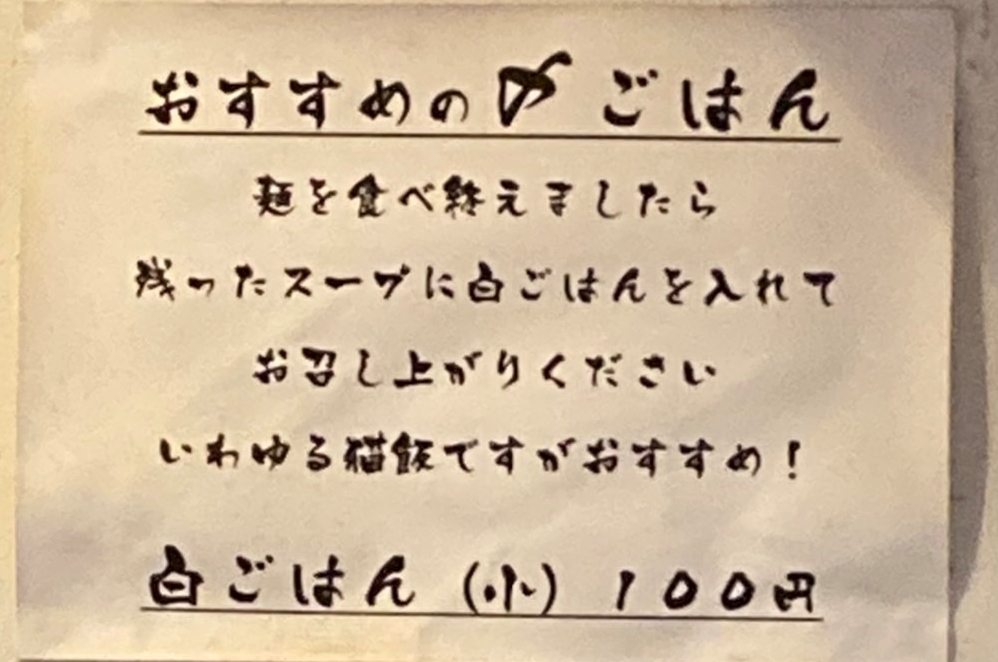 おすすめの〆ごはん
麺を食べ終えましたら
残ったスープに白ごはんを入れて
お召し上がりください
いわゆる猫飯ですがおすすめ！
白ごはん（小）１００円